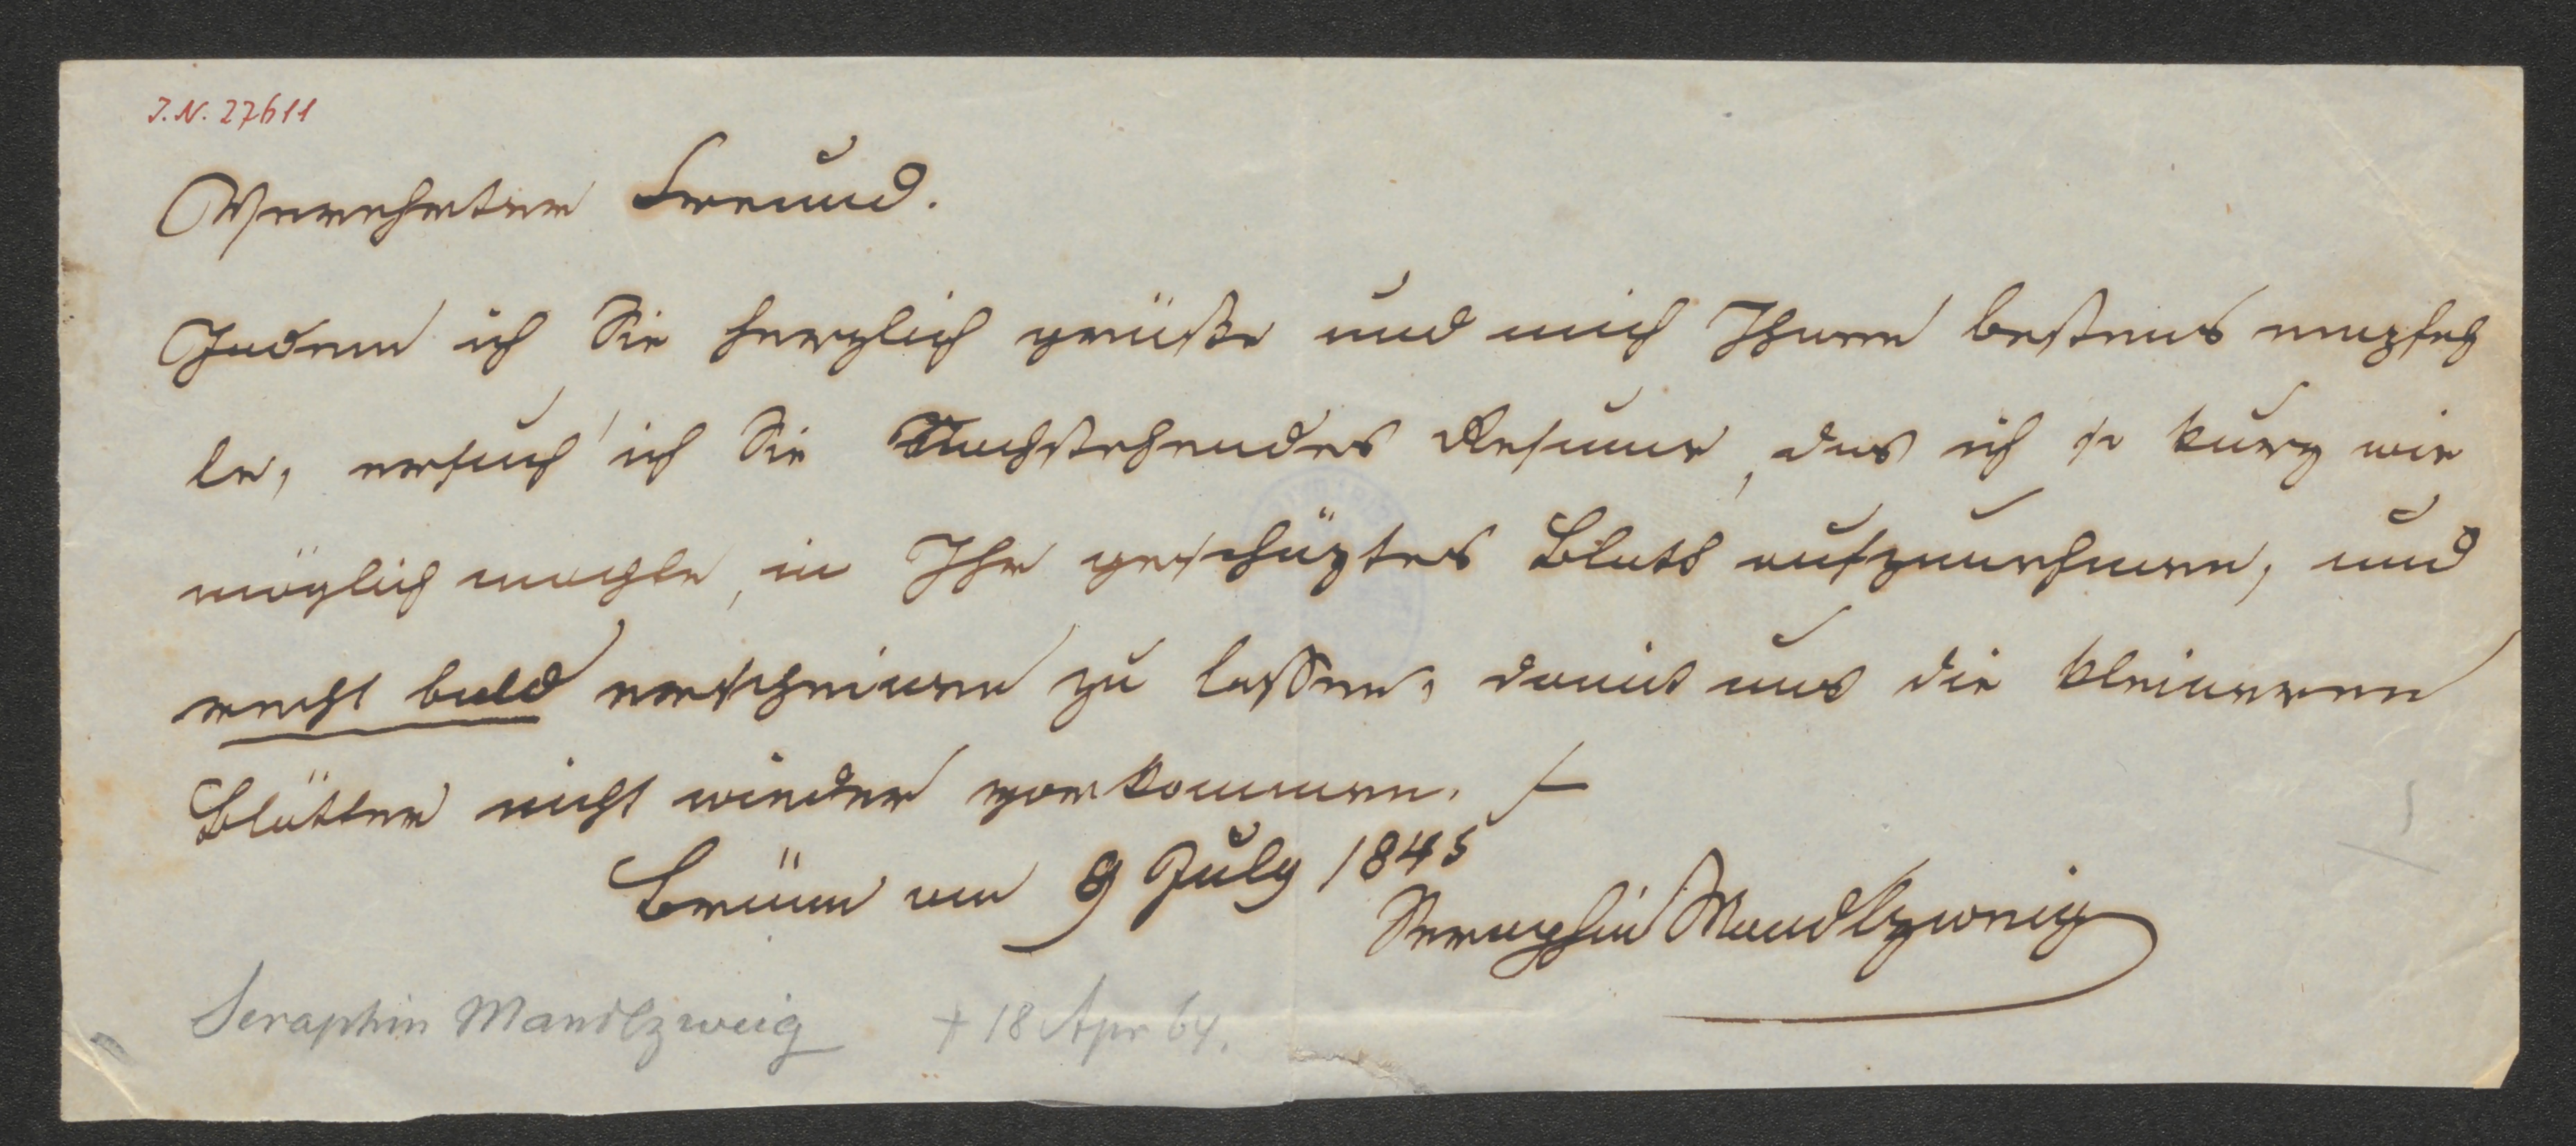 J.N. 27611
Verehrter Freund.
Indem ich Sie herzlich grüße und mich Ihnen bestens empfeh
le, ersuch' ich Sie Nachstehendes Resume, das ich so kurz wie
möglich machte, in Ihr geschäztes Blatt aufzunehmen, und
recht bald erscheinen zu lassen, damit uns die kleineren
Blätter nicht wieder vorkommen. –
Brünn am 9 July 1845
Seraphin Mandlzweig
Seraphin Mandlzweig † 18 Apr 64.